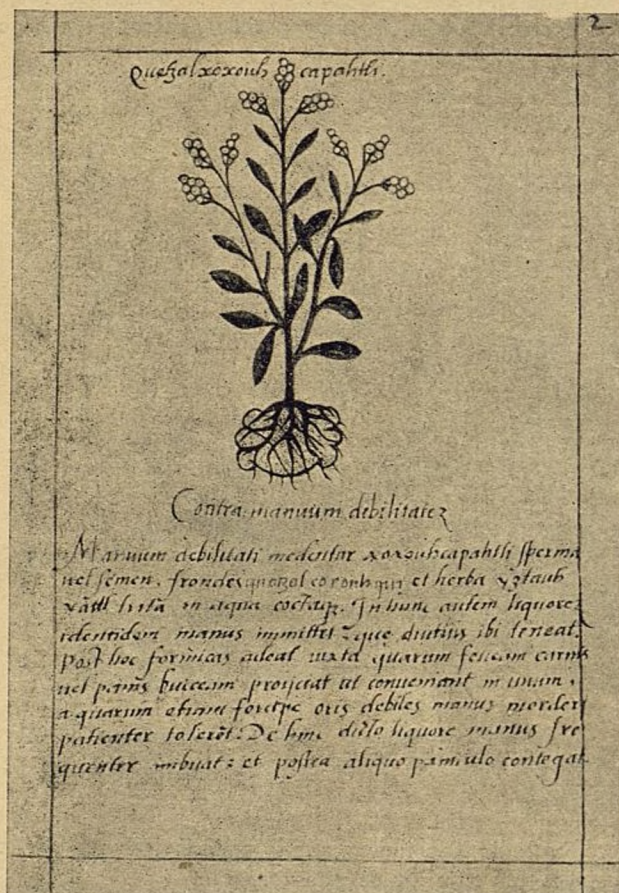 2
Quetzalxoxouh capahtli.
Contra manuum debilitatez
Manuum debilitati medentur xoxouhcapahtli sperma
vel semen, frondes et herba
trita in aqua coctaq3. In hunc autem liquorez
identidem manus immittit: que diutius ibi teneat.
Post hoc formicas adeat iuxta quarum carnis
vel panis buceam projiciat ut conveniant in unum,
a quarum etiam oris debiles manus morderi
patienter toleret: De hinc dicto liquore manus fre
quenter imbuat: et postea aliquo panniculo contegat